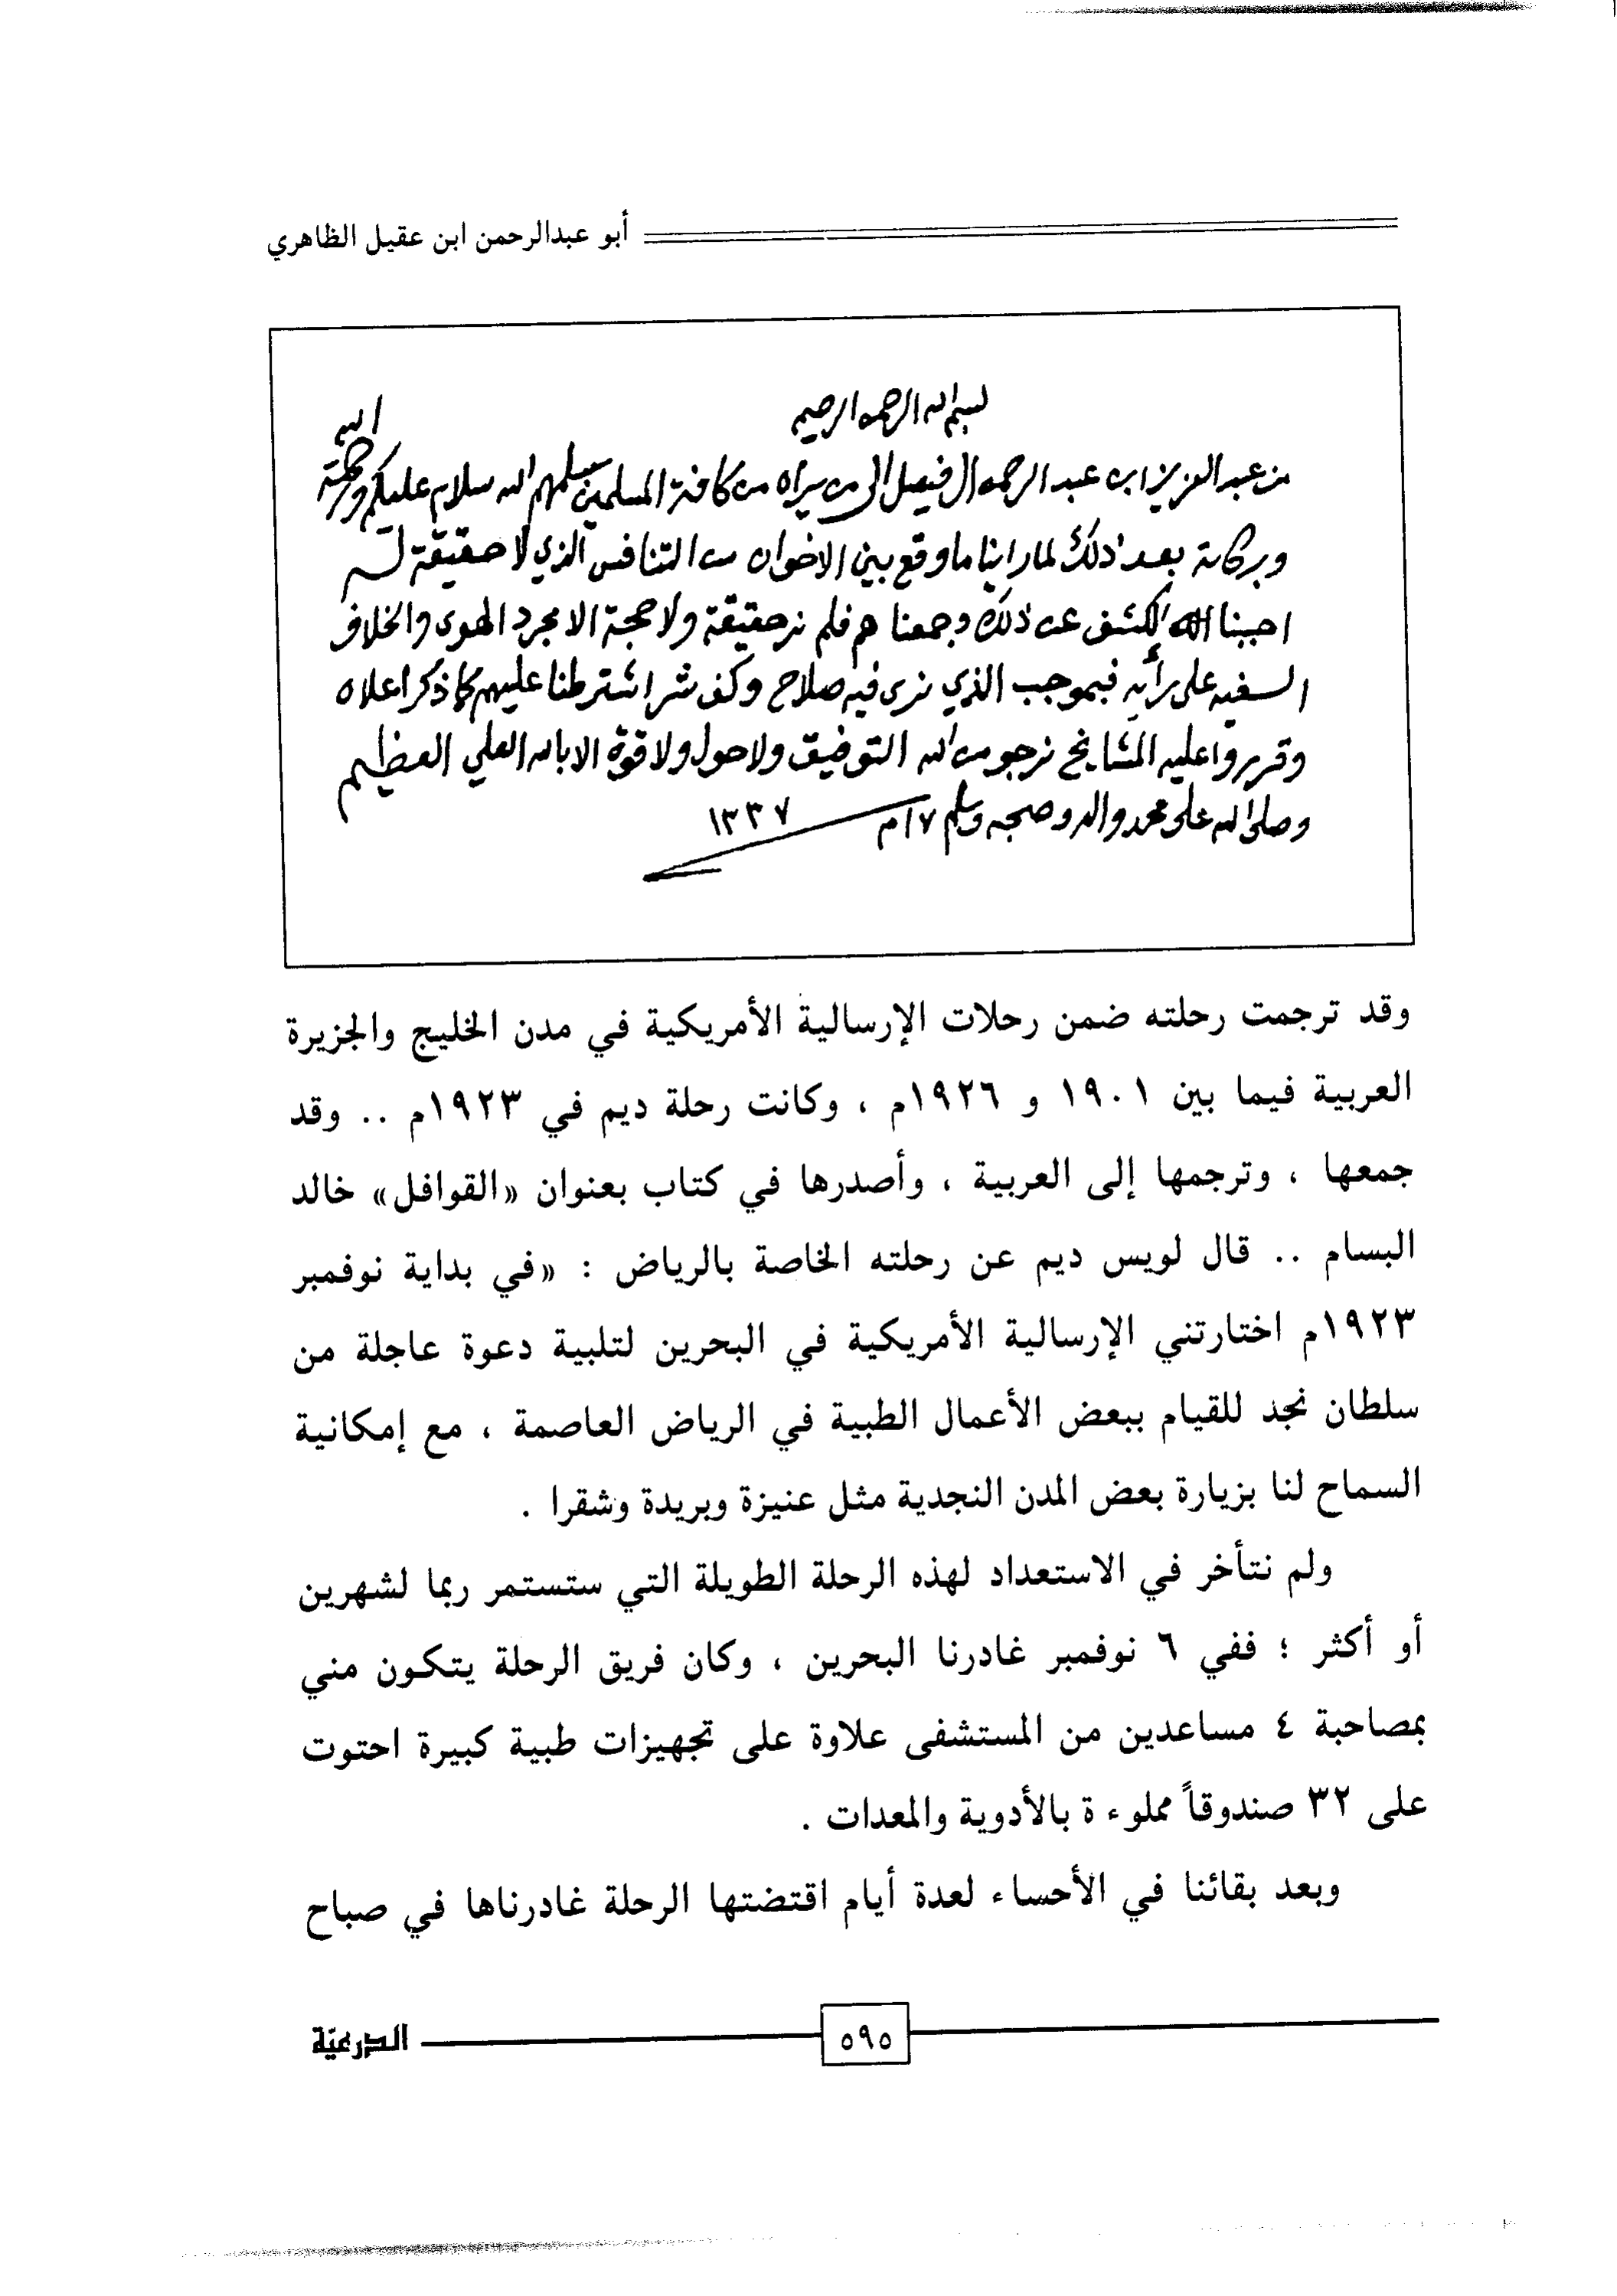 أبو عبدالرحمن ابن عقيل الظاهري
بسم الله الرحمن الرحيم
من عبد العزيز ابن عبد الرحمن ال فيصل الى من يراه من كافة المسلمين سلمهم الله سلام عليكم ورحمة الله
وبركاته بعد ذلك لما راينا ما وقع بين الاخوان من التنافس الذي لا حقيقة له
احببنا الكشف عن ذلك وجمعناهم فلم نر حقيقة ولا حجة الا مجرد الهوى والخلاف
السفيه على رأيه فبموجب الذي نرى فيه صلاح وكف شر اشترطنا عليهم كما ذكر اعلاه
وقرروا عليه المشايخ نرجو من الله التوفيق ولا حول ولا قوة الا بالله العلي العظيم
وصلى الله على محمد واله وصحبه وسلم ١٧ م ١٣٣٧
وقد ترجمت رحلته ضمن رحلات الإرسالية الأمريكية في مدن الخليج والجزيرة
العربية فيما بين ١٩٠١ و ١٩٢٦م ، وكانت رحلة ديم في ١٩٢٣م .. وقد
جمعها ، وترجمها إلى العربية ، وأصدرها في كتاب بعنوان «القوافل» خالد
البسام .. قال لويس ديم عن رحلته الخاصة بالرياض : «في بداية نوفمبر
١٩٢٣م اختارتني الإرسالية الأمريكية في البحرين لتلبية دعوة عاجلة من
سلطان نجد للقيام ببعض الأعمال الطبية في الرياض العاصمة ، مع إمكانية
السماح لنا بزيارة بعض المدن النجدية مثل عنيزة وبريدة وشقرا .
ولم نتأخر في الاستعداد لهذه الرحلة الطويلة التي ستستمر ربما لشهرين
أو أكثر ؛ ففي ٦ نوفمبر غادرنا البحرين ، وكان فريق الرحلة يتكون مني
بمصاحبة ٤ مساعدين من المستشفى علاوة على تجهيزات طبية كبيرة احتوت
على ٣٢ صندوقاً مملوءة بالأدوية والمعدات .
وبعد بقائنا في الأحساء لعدة أيام اقتضتها الرحلة غادرناها في صباح
٥٩٥
الدرعيّة